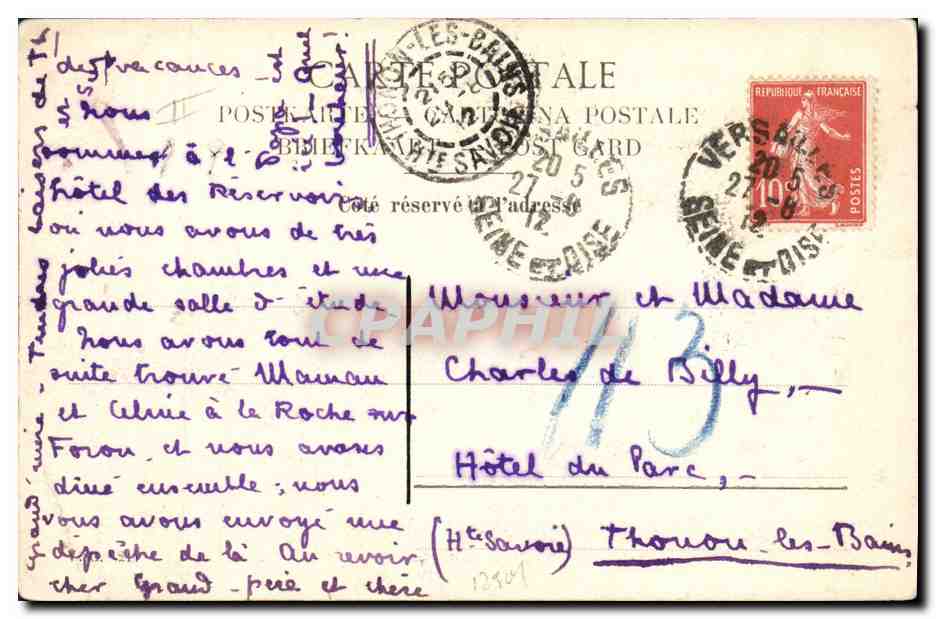 CARTE POSTALE
POSTKARTE CARTOLINA POSTALE
BRIEFKAART POST CARD
Côté réservé à l'adresse
des vacances
Nous
sommes à l'
hôtel des Réservoirs
où nous avons de très
jolies chambres et une
grande salle d'étude.
Nous avons tout de
suite trouvé Maman
et Celine à la Roche sur
Foron, et nous avons
diné ensemble ; nous
vous avons envoyé une
dépêche de là Au revoir
cher Grand-père et chère
grand'mère, Tendres baisers de
Papa est
Monsieur et Madame
Charles de Billy,
Hôtel du Parc,
(Hte Savoie) Thonon-les-Bains
113
THONON-LES-BAINS
HTE SAVOIE
VERSAILLES
20 5
27 -8
12
SEINE ET OISE
VERSAILLES
20 5
27 -8
12
SEINE ET OISE
REPUBLIQUE FRANÇAISE
10
POSTES
CPAPHIL